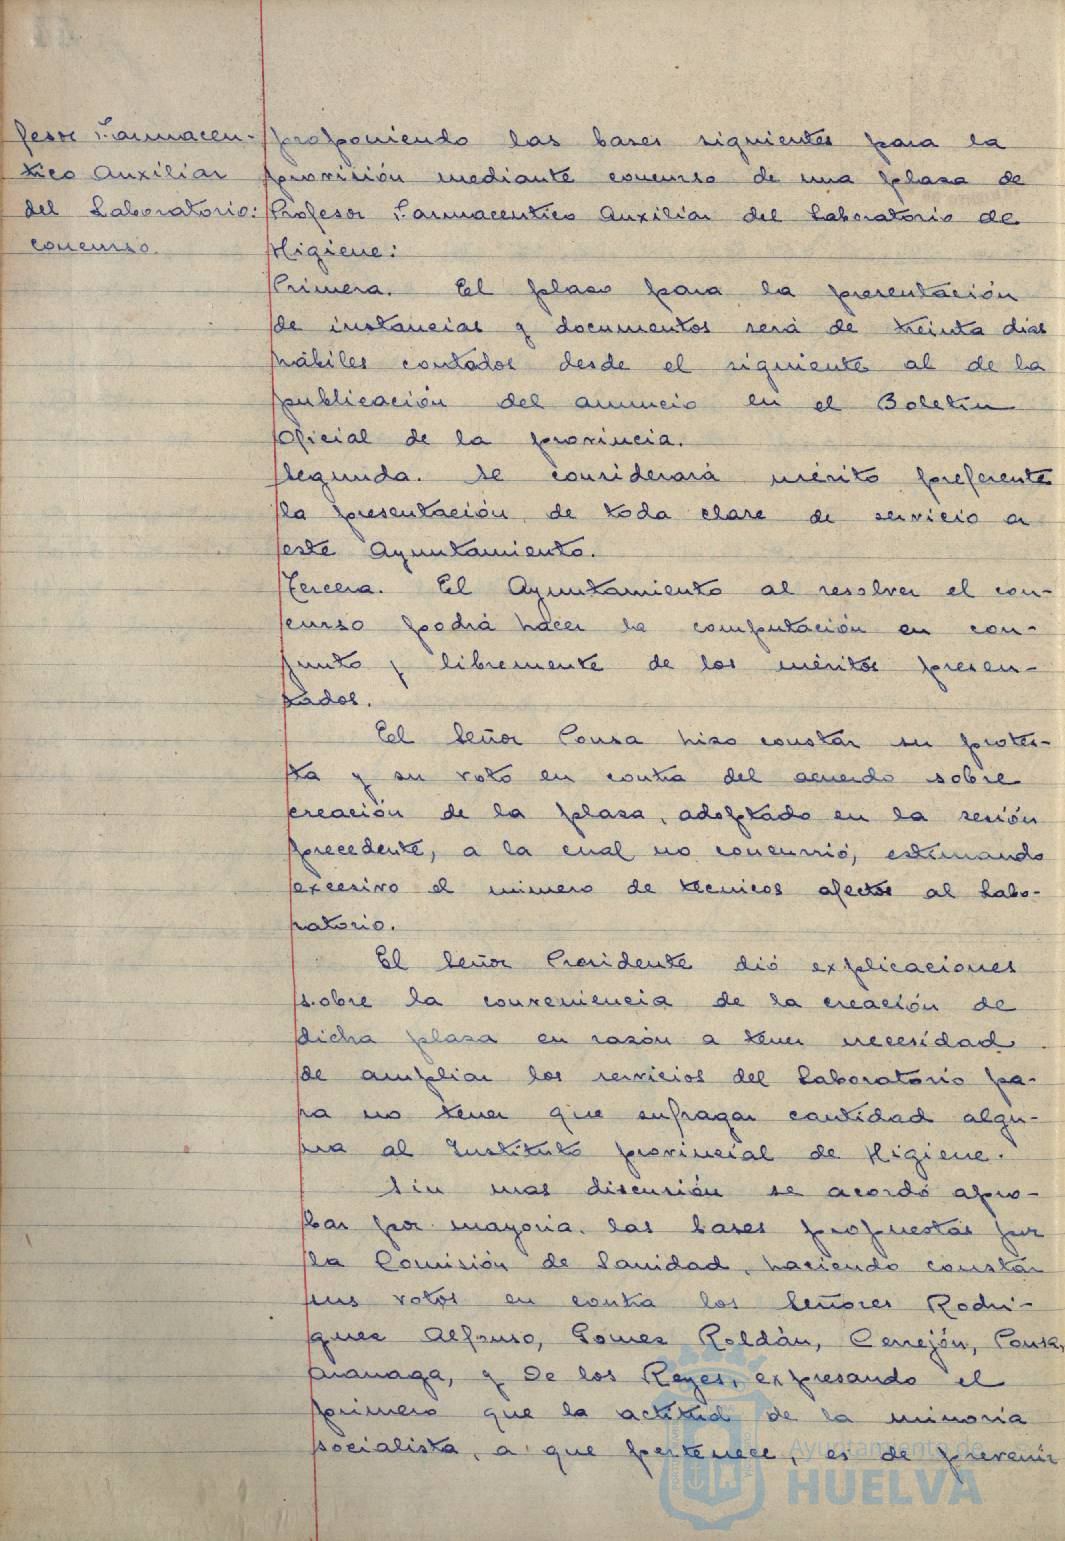 fesor Farmacéu-
tico Auxiliar
del Laboratorio:
concurso.
proponiendo las bases siguientes para la
provisión mediante concurso de una plaza de
Profesor Farmaceutico Auxiliar del Laboratorio de
Higiene:
Primera. El plazo para la presentación
de instancias y documentos será de treinta dias
hábiles contados desde el siguiente al de la
publicación del anuncio en el Boletin
Oficial de la provincia.
Segunda. Se considerará mérito preferente
la presentación de toda clase de servicio a
este Ayuntamiento.
Tercera. El Ayuntamiento al resolver el con-
curso podrá hacer la computación en con-
junto y libremente de los méritos presen-
tados.
El Señor Ponsa hizo constar su protes-
ta y su voto en contra del acuerdo sobre
creación de la plaza, adoptado en la sesión
precedente, a la cual no concurrió, estimando
excesivo el número de técnicos afectos al Labo-
ratorio.
El Señor Presidente dió explicaciones
sobre la conveniencia de la creación de
dicha plaza en razón a tener necesidad
de ampliar los servicios del Laboratorio pa-
ra no tener que sufragar cantidad algu-
na al Instituto provincial de Higiene.
Sin mas discusión se acordó apro-
bar por mayoria las bases propuestas por
la Comisión de Sanidad, haciendo constar
sus votos en contra los Señores Rodri-
guez Alfonso, Gomez Roldán, Cerrejón, Ponsa,
Aranaga, y De los Reyes, expresando el
primero que la actitud de la minoria
socialista, a que pertenece, es de prevenir
Ayuntamiento de
HUELVA